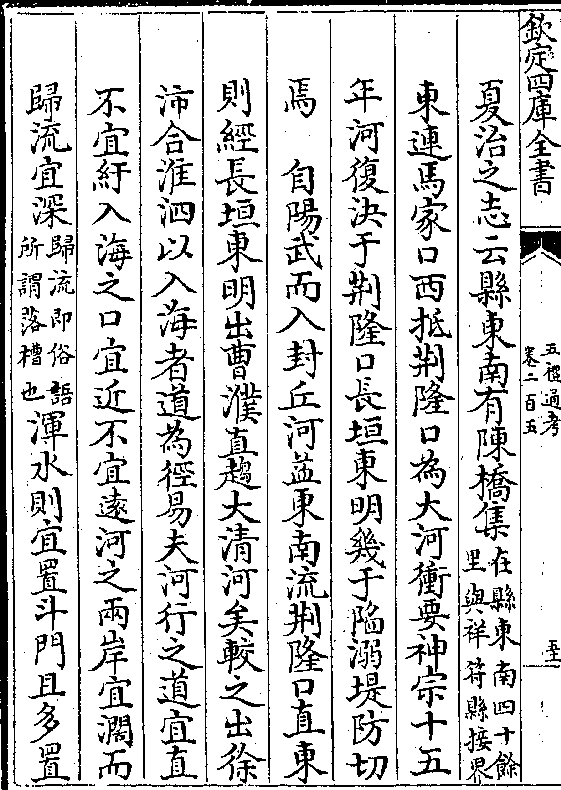 欽定四庫全書
五禮通考
卷二百五
夏治之志云縣東南有陳橋集在縣東南四十餘里與祥符縣接界
東連馬家口西抵荆隆口為大河衝要神宗十五
年河復決于荆隆口長垣東明幾于陷溺堤防切
焉　自陽武而入封丘河益東南流荆隆口直東
則經長垣東明出曹濮直趨大清河矣較之出徐
沛合淮泗以入海者道為徑易夫河行之道宜直
不宜紆入海之口宜近不宜遠河之兩岸宜濶而
歸流宜深歸流即俗語所謂落槽也渾水則宜置斗門且多置